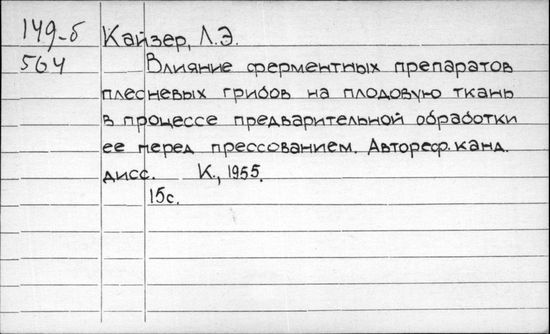 149-б Кайзер, Л.Э.
564 Влияние ферментных препаратов
плесневых грибов на плодовую ткань
в процессе предварительной обработки
ее перед прессованием. Автореф. канд.
дисс. К., 1955.
15с.